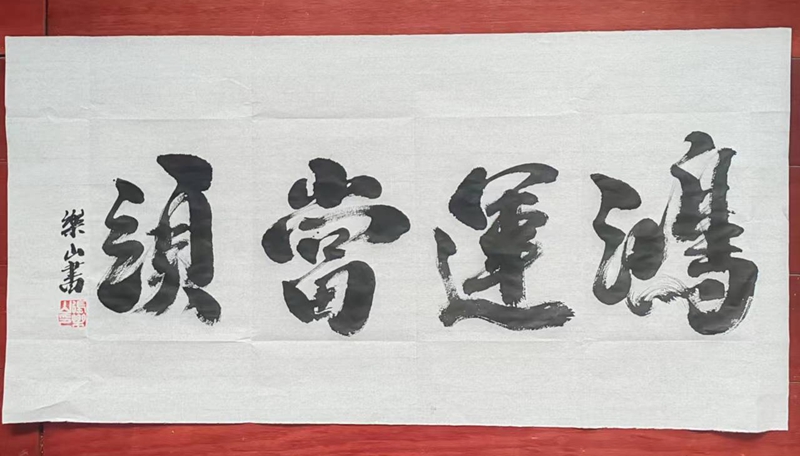 鴻運當頭
樂山書